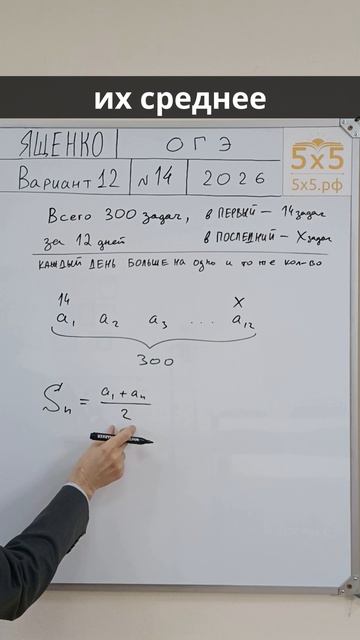 их среднее
ЯЩЕНКО ОГЭ
Вариант 12 №14 2026
5х5
5x5.рф
Всего 300 задач, в ПЕРВЫЙ — 14 задач
за 12 дней в ПОСЛЕДНИЙ — X задач
КАЖДЫЙ ДЕНЬ БОЛЬШЕ НА ОДНО И ТО ЖЕ КОЛ-ВО
14 X
a₁ a₂ a₃ ... a₁₂
300
Sₙ = (a₁ + aₙ)/2